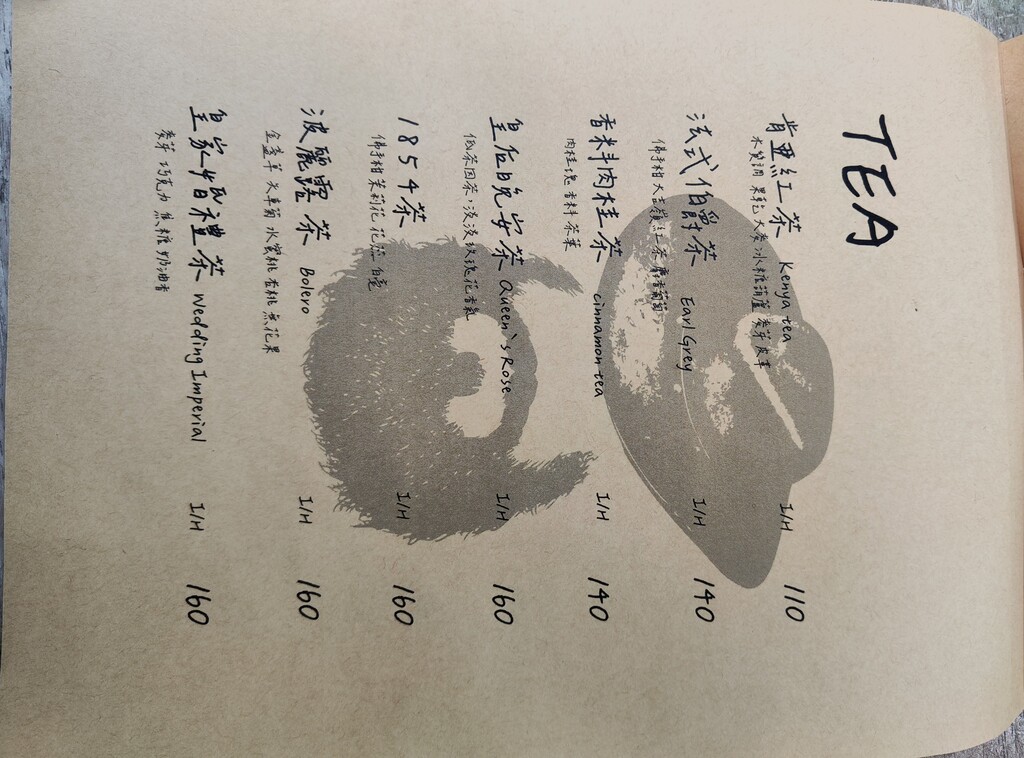 TEA
肯亞紅茶 Kenya tea I/H 110
木質調 果乾 大麥 冰糖葫蘆 麥芽 皮革
法式伯爵茶 Earl Grey I/H 140
佛手柑 大吉嶺紅茶 麝香葡萄
香料肉桂茶 cinnamon tea I/H 140
肉桂塊 香料 茶葉
皇后晚安茶 Queen's Rose I/H 160
低茶因茶,淡淡玫瑰花香氣
1854茶 I/H 160
佛手柑 茉莉花 花茶 白毫
波麗露茶 Bolero I/H 160
金盞草 矢車菊 水蜜桃 杏桃 無花果
皇家婚禮茶 Wedding Imperial I/H 160
麥芽 巧克力 焦糖 奶油香